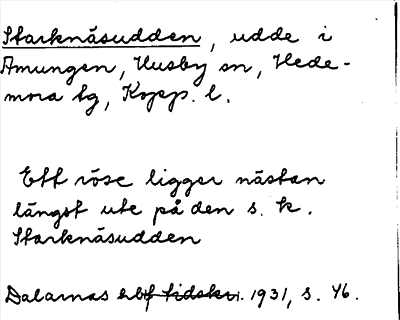 Starknäsudden, udde i
Amungen, Husby sn, Hede-
mora tg, Kopp. l.
Ett röse ligger nästan
längst ute på den s. k.
Starknäsudden
Dalarnas hbf tidskr. 1931, s. 46.